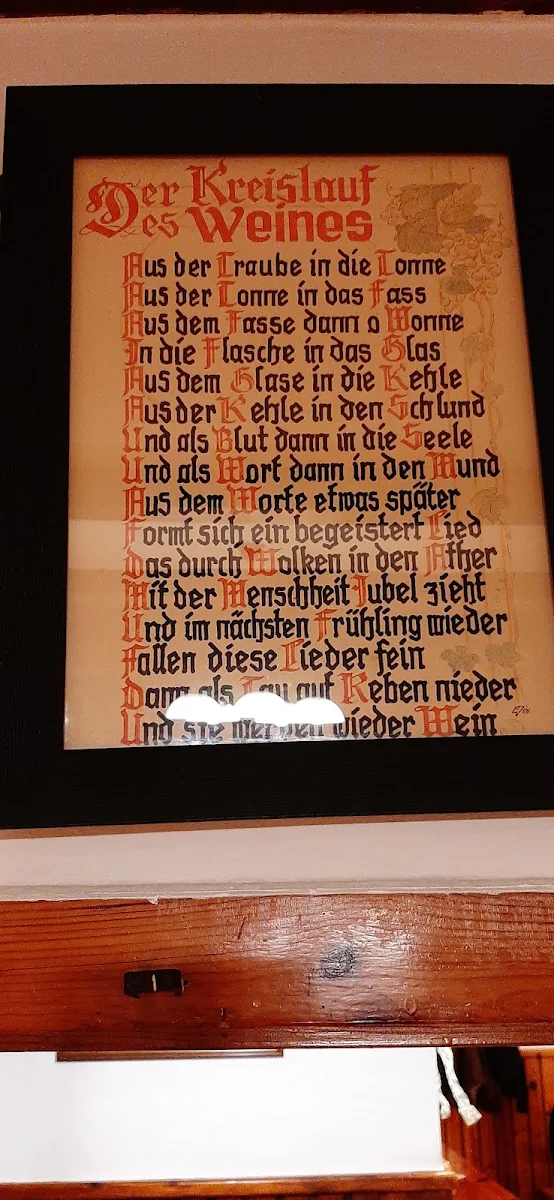 Der Kreislauf
Des Weines
Aus der Traube in die Tonne
Aus der Tonne in das Fass
Aus dem Fasse dann o Wonne
In die Flasche in das Glas
Aus dem Glase in die Kehle
Aus der Kehle in den Schlund
Und als Blut dann in die Seele
Und als Wort dann in den Mund
Aus dem Worte etwas später
Formt sich ein begeistert Lied
Das durch Wolken in den Äther
Mit der Menschheit Jubel zieht
Und im nächsten Frühling wieder
Fallen diese Lieder fein
Dann als Tau auf Reben nieder
Und sie werden wieder Wein